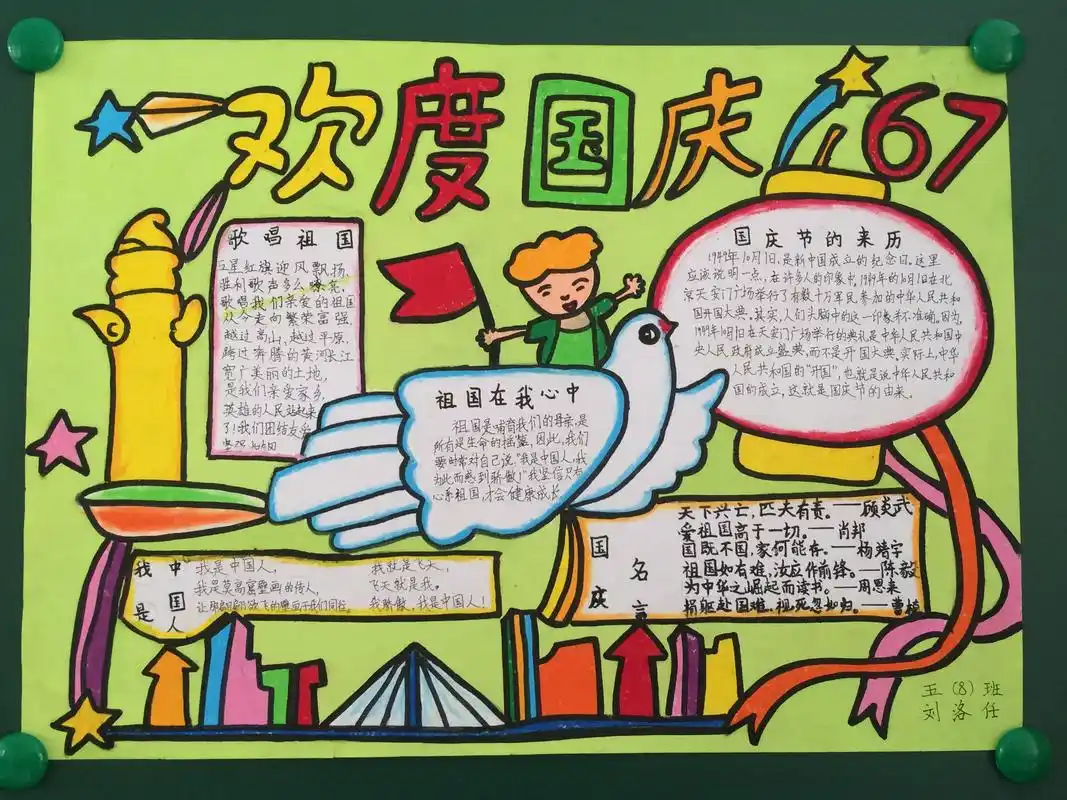 欢度国庆67
歌唱祖国
五星红旗迎风飘扬,
胜利歌声多么嘹亮,
歌唱我们亲爱的祖国
从今走向繁荣富强,
越过高山,越过平原,
跨过奔腾的黄河长江
宽广美丽的土地,
是我们亲爱家乡,
英雄的人民站起来
了!我们团结友爱
坚强
国庆节的来历
1949年10月1日,是新中国成立的纪念日。这里
应该说明一点,在许多人的印象中,1949年的10月1日在北
京天安门广场举行了有数十万军民参加的中华人民共和
国开国大典。其实,人们头脑中的这一印象并不准确。因为,
1949年10月1日在天安门广场举行的典礼是中华人民共和国中
央人民政府成立盛典,而不是开国大典。实际上,中华
人民共和国的"开国",也就是说中华人民共和
国的成立,这就是国庆节的由来。
祖国在我心中
祖国是哺育我们的母亲,是
所有是生命的摇篮,因此,我们
要时常对自己说"我是中国人,我
为此而感到骄傲!"我坚信只有
心系祖国,才会健康成长
我是中国人
我是中国人,
我是莫高窟壁画的传人,
让那翩翩欲飞的壁画于我们同在
我就是飞天,
飞天就是我。
我骄傲,我是中国人!
国庆名言
天下兴亡,匹夫有责。——顾炎武
爱祖国高于一切。——肖邦
国既不国,家何能存。——杨靖宇
祖国如有难,汝应作前锋。——陈毅
为中华之崛起而读书。——周恩来
捐躯赴国难,视死忽如归。——曹植
五(8)班
刘洛任